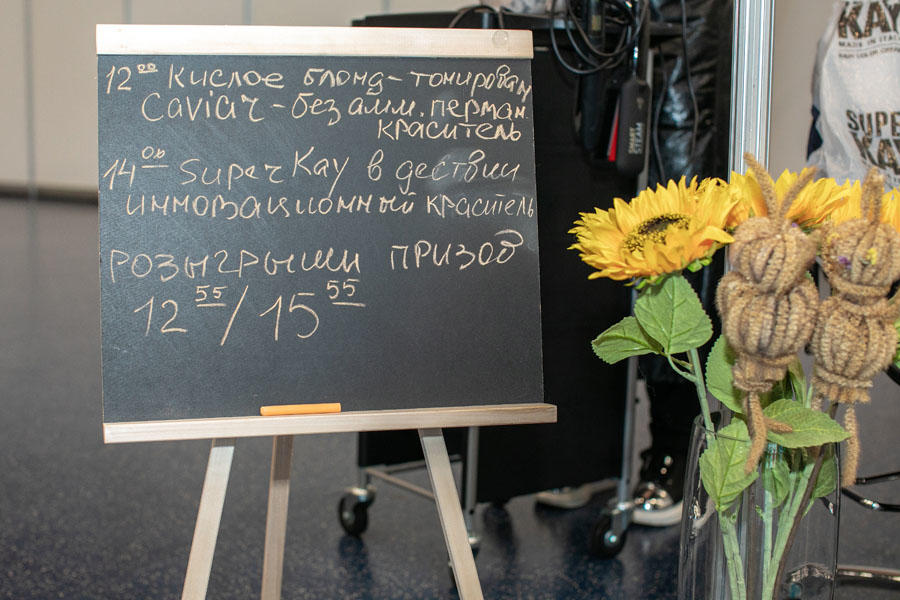 12⁰⁰ Кислое блонд-тонирован
Caviar - без амм. перман.
краситель
14⁰⁰ Super Kay в дествии
инновационный краситель
розыгрыши призов
12⁵⁵ / 15⁵⁵
KAY
MADE IN ITALY
SUPER
KAY